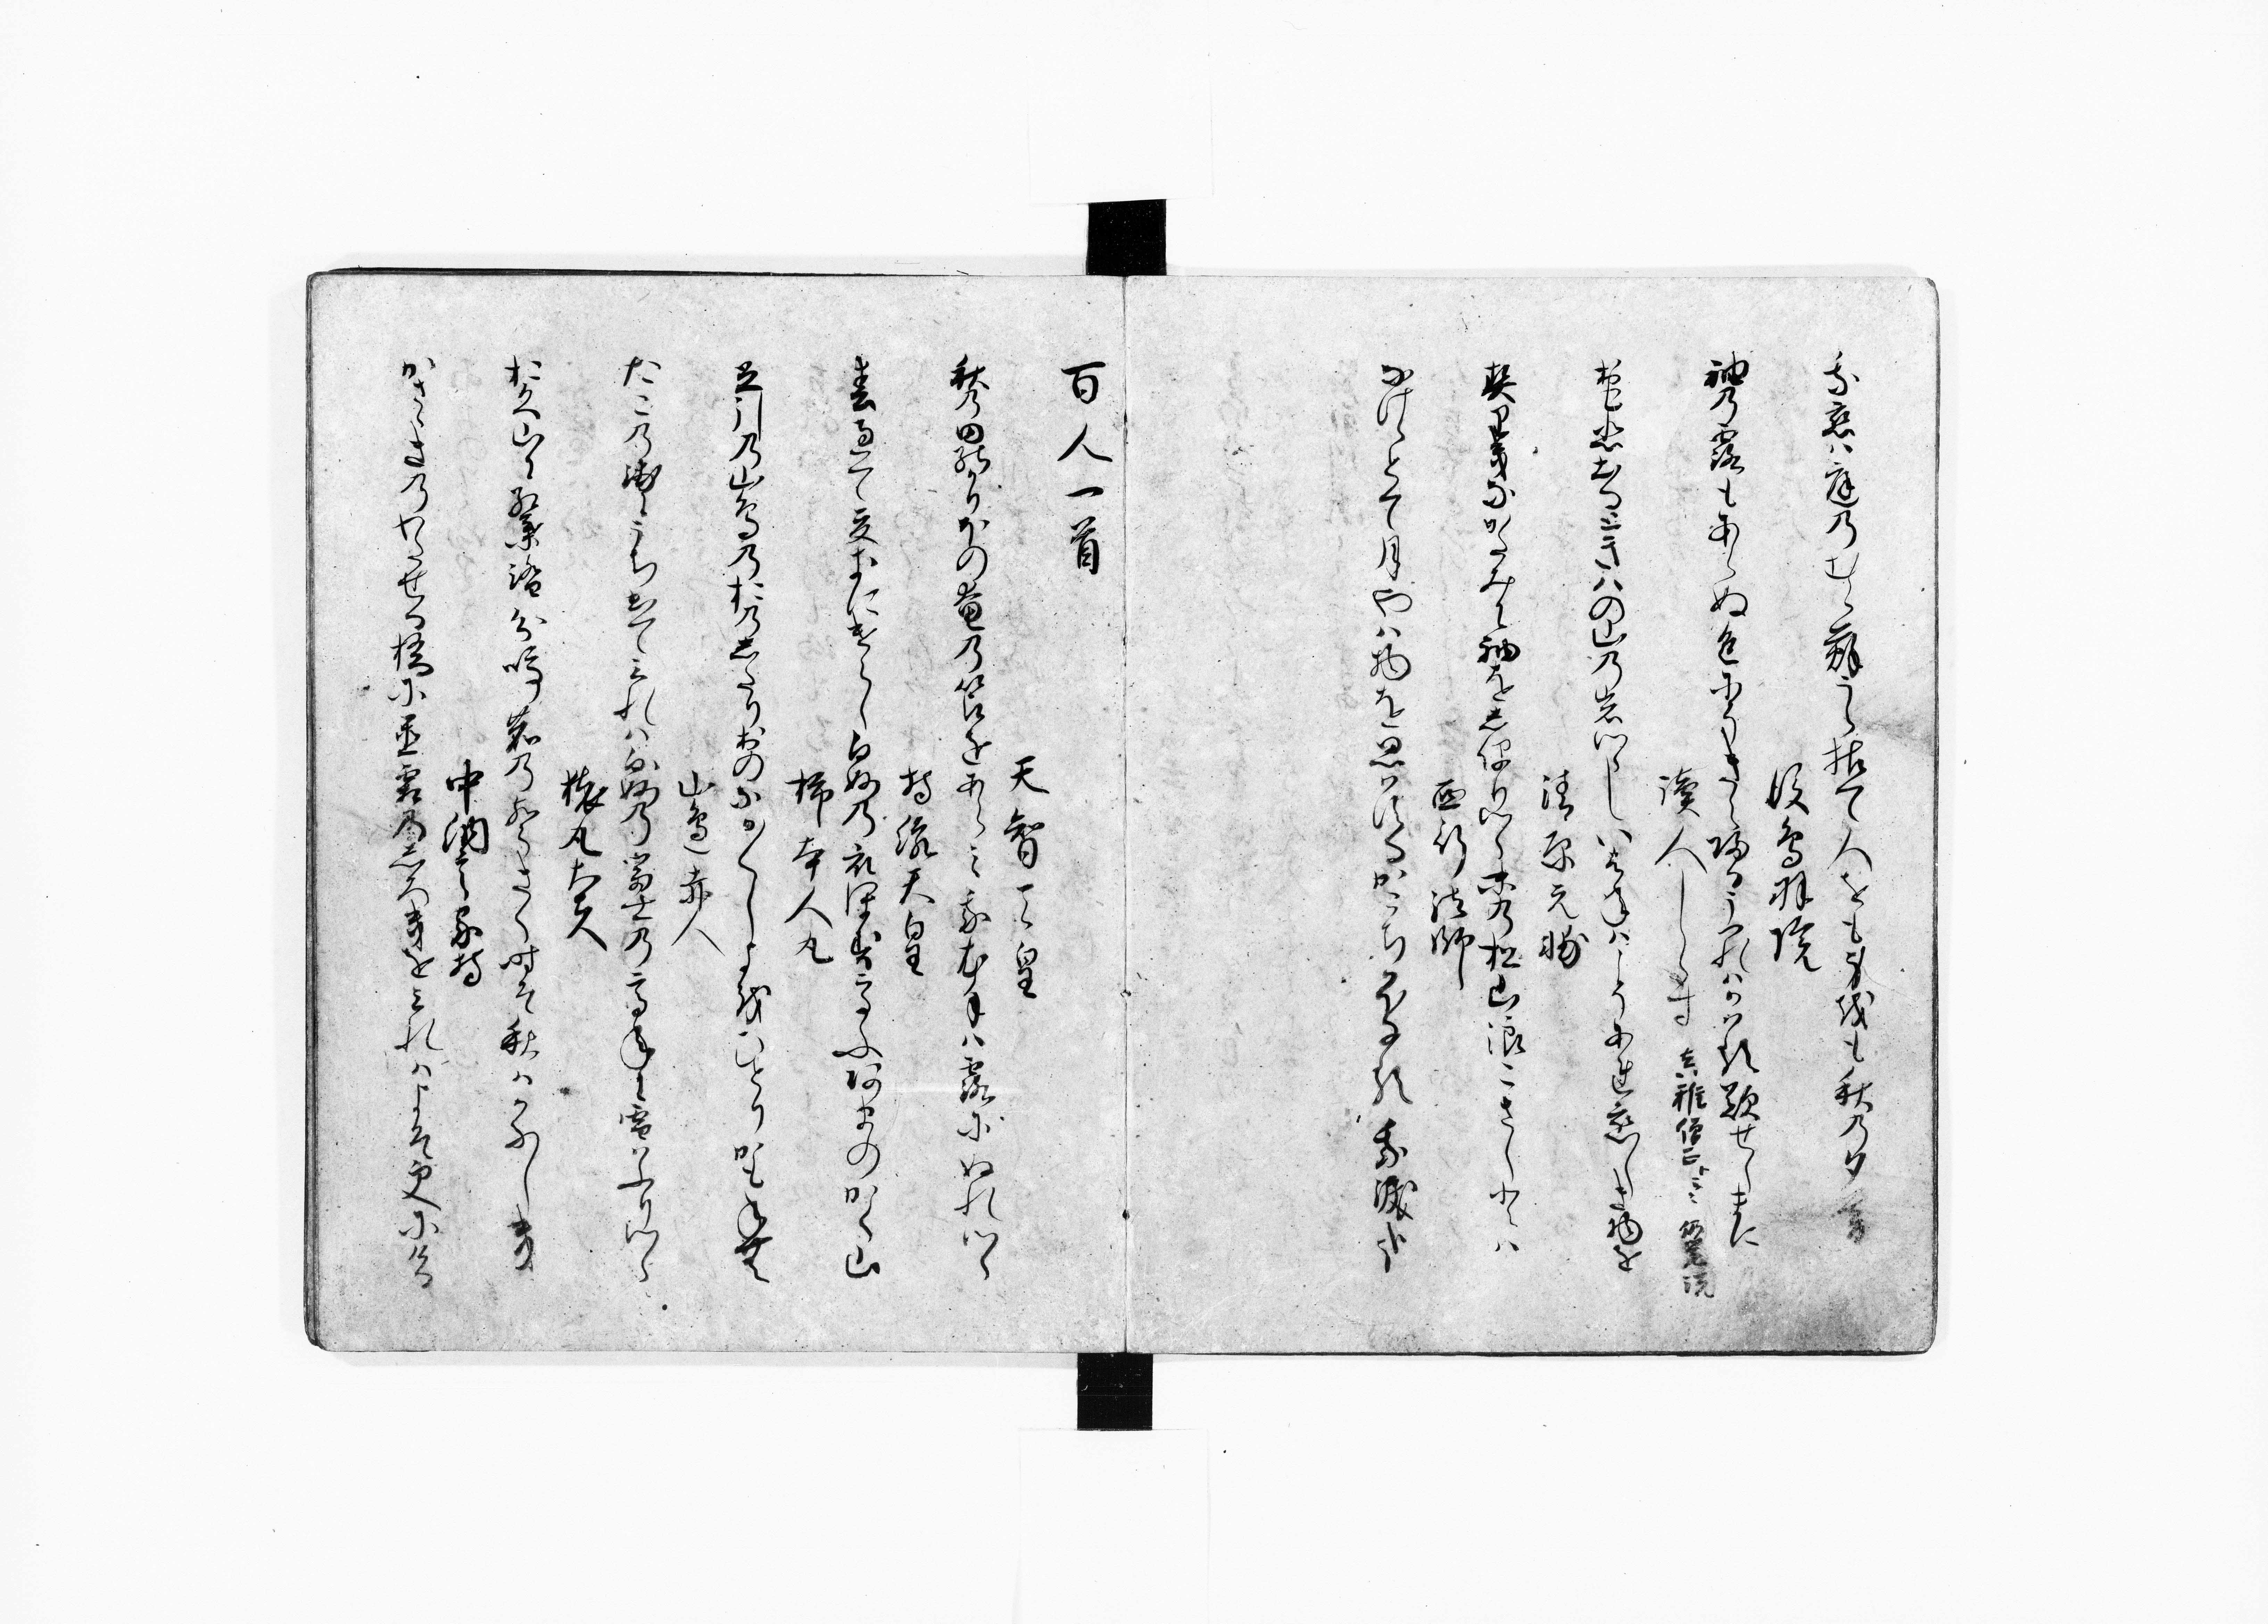 我恋ハ庭乃むら萩うら枯て人をも身越も秋乃夕
後鳥羽院
袖乃露もあらぬ色にそきえ帰るうつれハかハる歎せしまに
讀人しらす
思出るときハの山乃岩つゝしいはねハこそあれ恋しき物を
清原元輔
契りきなかたみに袖をしほりつゝ末乃松山浪こさしとハ
西行法師
なけゝとて月やハ物を思ハするかこち顔なる我涙哉
百人一首
天智天皇
秋乃田のかりほの庵乃苫をあらミ我衣手ハ露にぬれつゝ
持統天皇
春過て夏来にけらし白妙乃衣ほすてふあまのかく山
柿本人丸
足引乃山鳥乃お乃したりおのなかゝゝし夜をひとりかもねむ
山邊赤人
たこ乃浦にうち出てミれハ白妙乃富士乃高ねに雪ハふりつゝ
猿丸大夫
おく山に紅葉踏分鳴鹿乃声きく時そ秋ハかなしき
中納言家持
かさゝき乃わたせる橋に置霜乃しろきをミれハ夜そ更にける